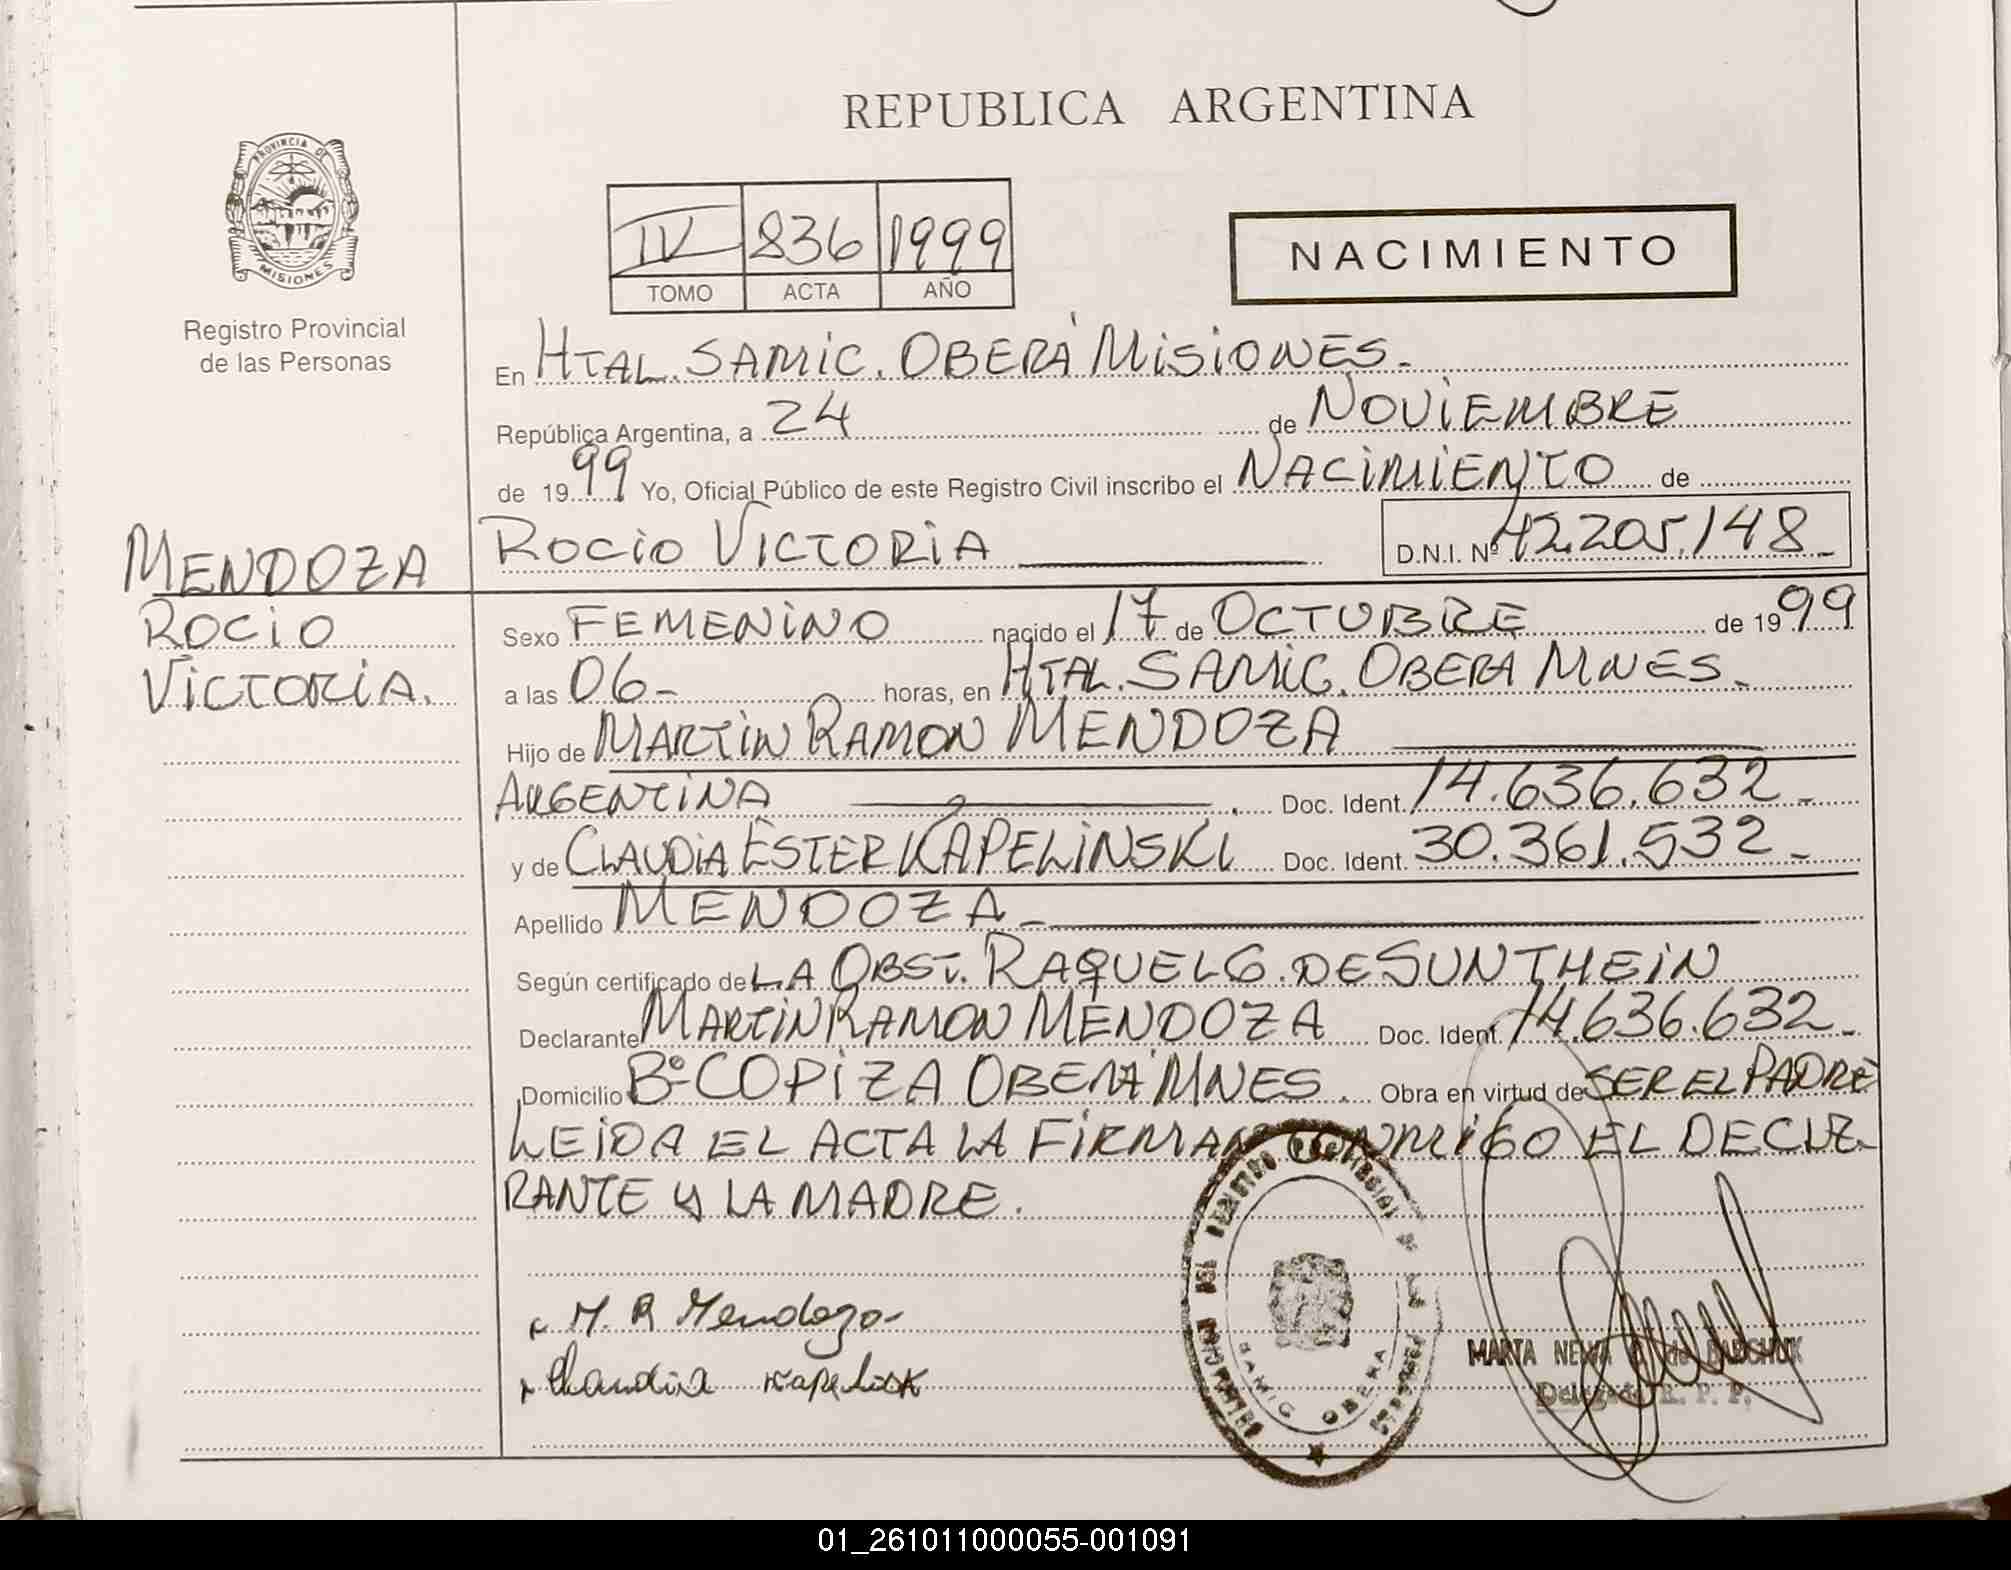 REPUBLICA ARGENTINA
PROVINCIA DE
MISIONES
Registro Provincial
de las Personas
IV 836 1999
TOMO ACTA AÑO
NACIMIENTO
En HTAL. SAMIC. OBERÁ MISIONES.
República Argentina, a 24 de NOVIEMBRE
de 1999 Yo, Oficial Público de este Registro Civil inscribo el NACIMIENTO de
ROCIO VICTORIA D.N.I. Nº 42.205.148
MENDOZA
ROCIO
VICTORIA.
Sexo FEMENINO nacido el 17 de OCTUBRE de 1999
a las 06 horas, en HTAL. SAMIC. OBERA MNES.
Hijo de MARTIN RAMON MENDOZA
ARGENTINA Doc. Ident. 14.636.632
y de CLAUDIA ESTER KAPELINSKI Doc. Ident. 30.361.532
Apellido MENDOZA
Según certificado de LA OBST. RAQUEL G. DE SUNTHEIN
Declarante MARTIN RAMON MENDOZA Doc. Ident. 14.636.632
Domicilio Bº COPIZA OBERÁ MNES. Obra en virtud de SER EL PADRE
LEIDA EL ACTA LA FIRMAN CONMIGO EL DECLA-
RANTE Y LA MADRE.
M. R Mendoza
Claudia
SAMIC OBERA
MARTA
Delegada R. P. P.
01_261011000055-001091